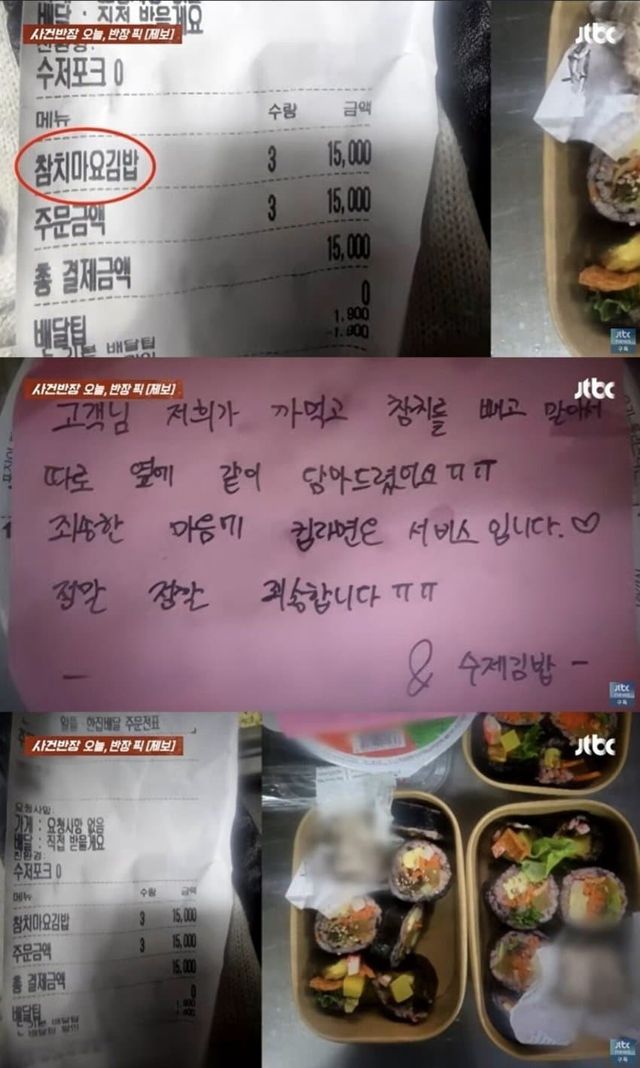 배달 : 직접 받을게요
사건반장 오늘, 반장 픽 [제보]
jtbc
친환경:
수저포크 0
메뉴 수량 금액
참치마요김밥 3 15,000
주문금액 3 15,000
총 결제금액 15,000
배달팁 0
1,800
-1,800
jtbc
news
구독
사건반장 오늘, 반장 픽 [제보]
jtbc
고객님 저희가 까먹고 참치를 빼고 말아서
따로 옆에 같이 담아드렸어요ㅠㅠ
죄송한 마음에 컵라면은 서비스입니다.♡
정말 정말 죄송합니다ㅠㅠ
& 수제김밥 -
jtbc
news
구독
알뜰 한집배달 주문전표
사건반장 오늘, 반장 픽 [제보]
jtbc
요청사항:
가게 : 요청사항 없음
배달 : 직접 받을게요
친환경:
수저포크 0
메뉴 수량 금액
참치마요김밥 3 15,000
주문금액 3 15,000
총 결제금액 15,000
배달팁 0
1,800
jtbc
news
구독